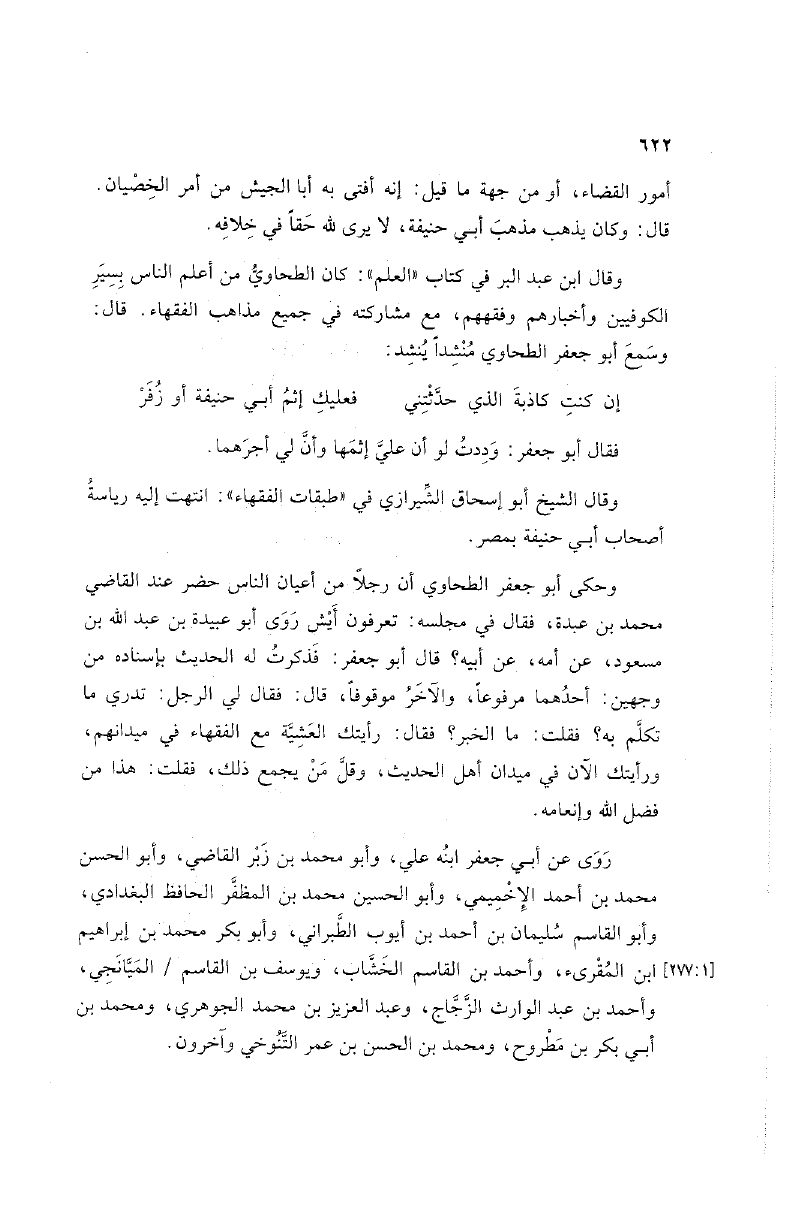 ٦٢٢
أمور القضاء، أو من جهة ما قيل: إنه أفتى به أبا الجيش من أمر الخِصْيان.
قال: وكان يذهب مذهبَ أبي حنيفة، لا يرى لله حَقاً في خِلافِه.
وقال ابن عبد البر في كتاب «العلم»: كان الطحاويُّ من أعلم الناس بِسِيَرِ
الكوفيين وأخبارهم وفقههم، مع مشاركته في جميع مذاهب الفقهاء. قال:
وسَمِعَ أبو جعفر الطحاوي مُنْشِداً يُنشِد:
إن كنتِ كاذبةَ الذي حدَّثْتِني فعليكِ إثمُ أبي حنيفة أو زُفَرْ
فقال أبو جعفر: وَدِدتُ لو أن عليَّ إثمَها وأنَّ لي أجرَهما.
وقال الشيخ أبو إسحاق الشِّيرازي في «طبقات الفقهاء»: انتهت إليه رياسةُ
أصحاب أبي حنيفة بمصر.
وحكى أبو جعفر الطحاوي أن رجلاً من أعيان الناس حضر عند القاضي
محمد بن عبدة، فقال في مجلسه: تعرفون أَيْش رَوَى أبو عبيدة بن عبد الله بن
مسعود، عن أمه، عن أبيه؟ قال أبو جعفر: فَذكرتُ له الحديث بإسناده من
وجهين: أحدُهما مرفوعاً، والآخَرُ موقوفاً، قال: فقال لي الرجل: تدري ما
تكلَّم به؟ فقلت: ما الخبر؟ فقال: رأيتك العَشِيَّة مع الفقهاء في ميدانهم،
ورأيتك الآن في ميدان أهل الحديث، وقلَّ مَنْ يجمع ذلك، فقلت: هذا من
فضل الله وإنعامه.
رَوَى عن أبي جعفر ابنُه علي، وأبو محمد بن زَبْر القاضي، وأبو الحسن
محمد بن أحمد الإِخْمِيمي، وأبو الحسين محمد بن المظفَّر الحافظ البغدادي،
وأبو القاسم سُليمان بن أحمد بن أيوب الطَّبراني، وأبو بكر محمد بن إبراهيم
[٢٧٧:١] ابن المُقْرىء، وأحمد بن القاسم الخَشَّاب، ويوسف بن القاسم / المَيَّانَجِي،
وأحمد بن عبد الوارث الزَّجَّاج، وعبد العزيز بن محمد الجوهري، ومحمد بن
أبي بكر بن مَطْروح، ومحمد بن الحسن بن عمر التَّنُوخي وآخرون.